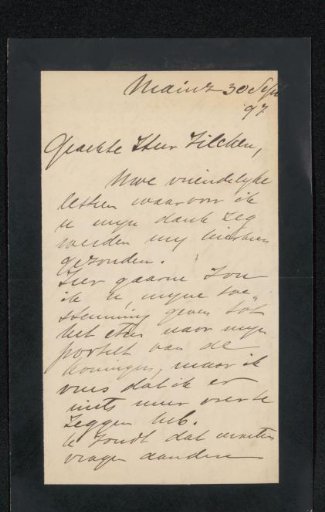 Mainz 30 Sept
97
Geachte Heer Zilcken,
Uwe vriendelijke
letteren waarvoor ik
u mijn dank zeg
werden mij hierheen
gezonden.
Zeer gaarne zou
ik u, mijne toe-
stemming geven tot
het etsen naar mijn
portret van de
Koningin, maar ik
vrees dat ik er
niets meer over te
zeggen heb.
U zoudt dat moeten
vragen aan den